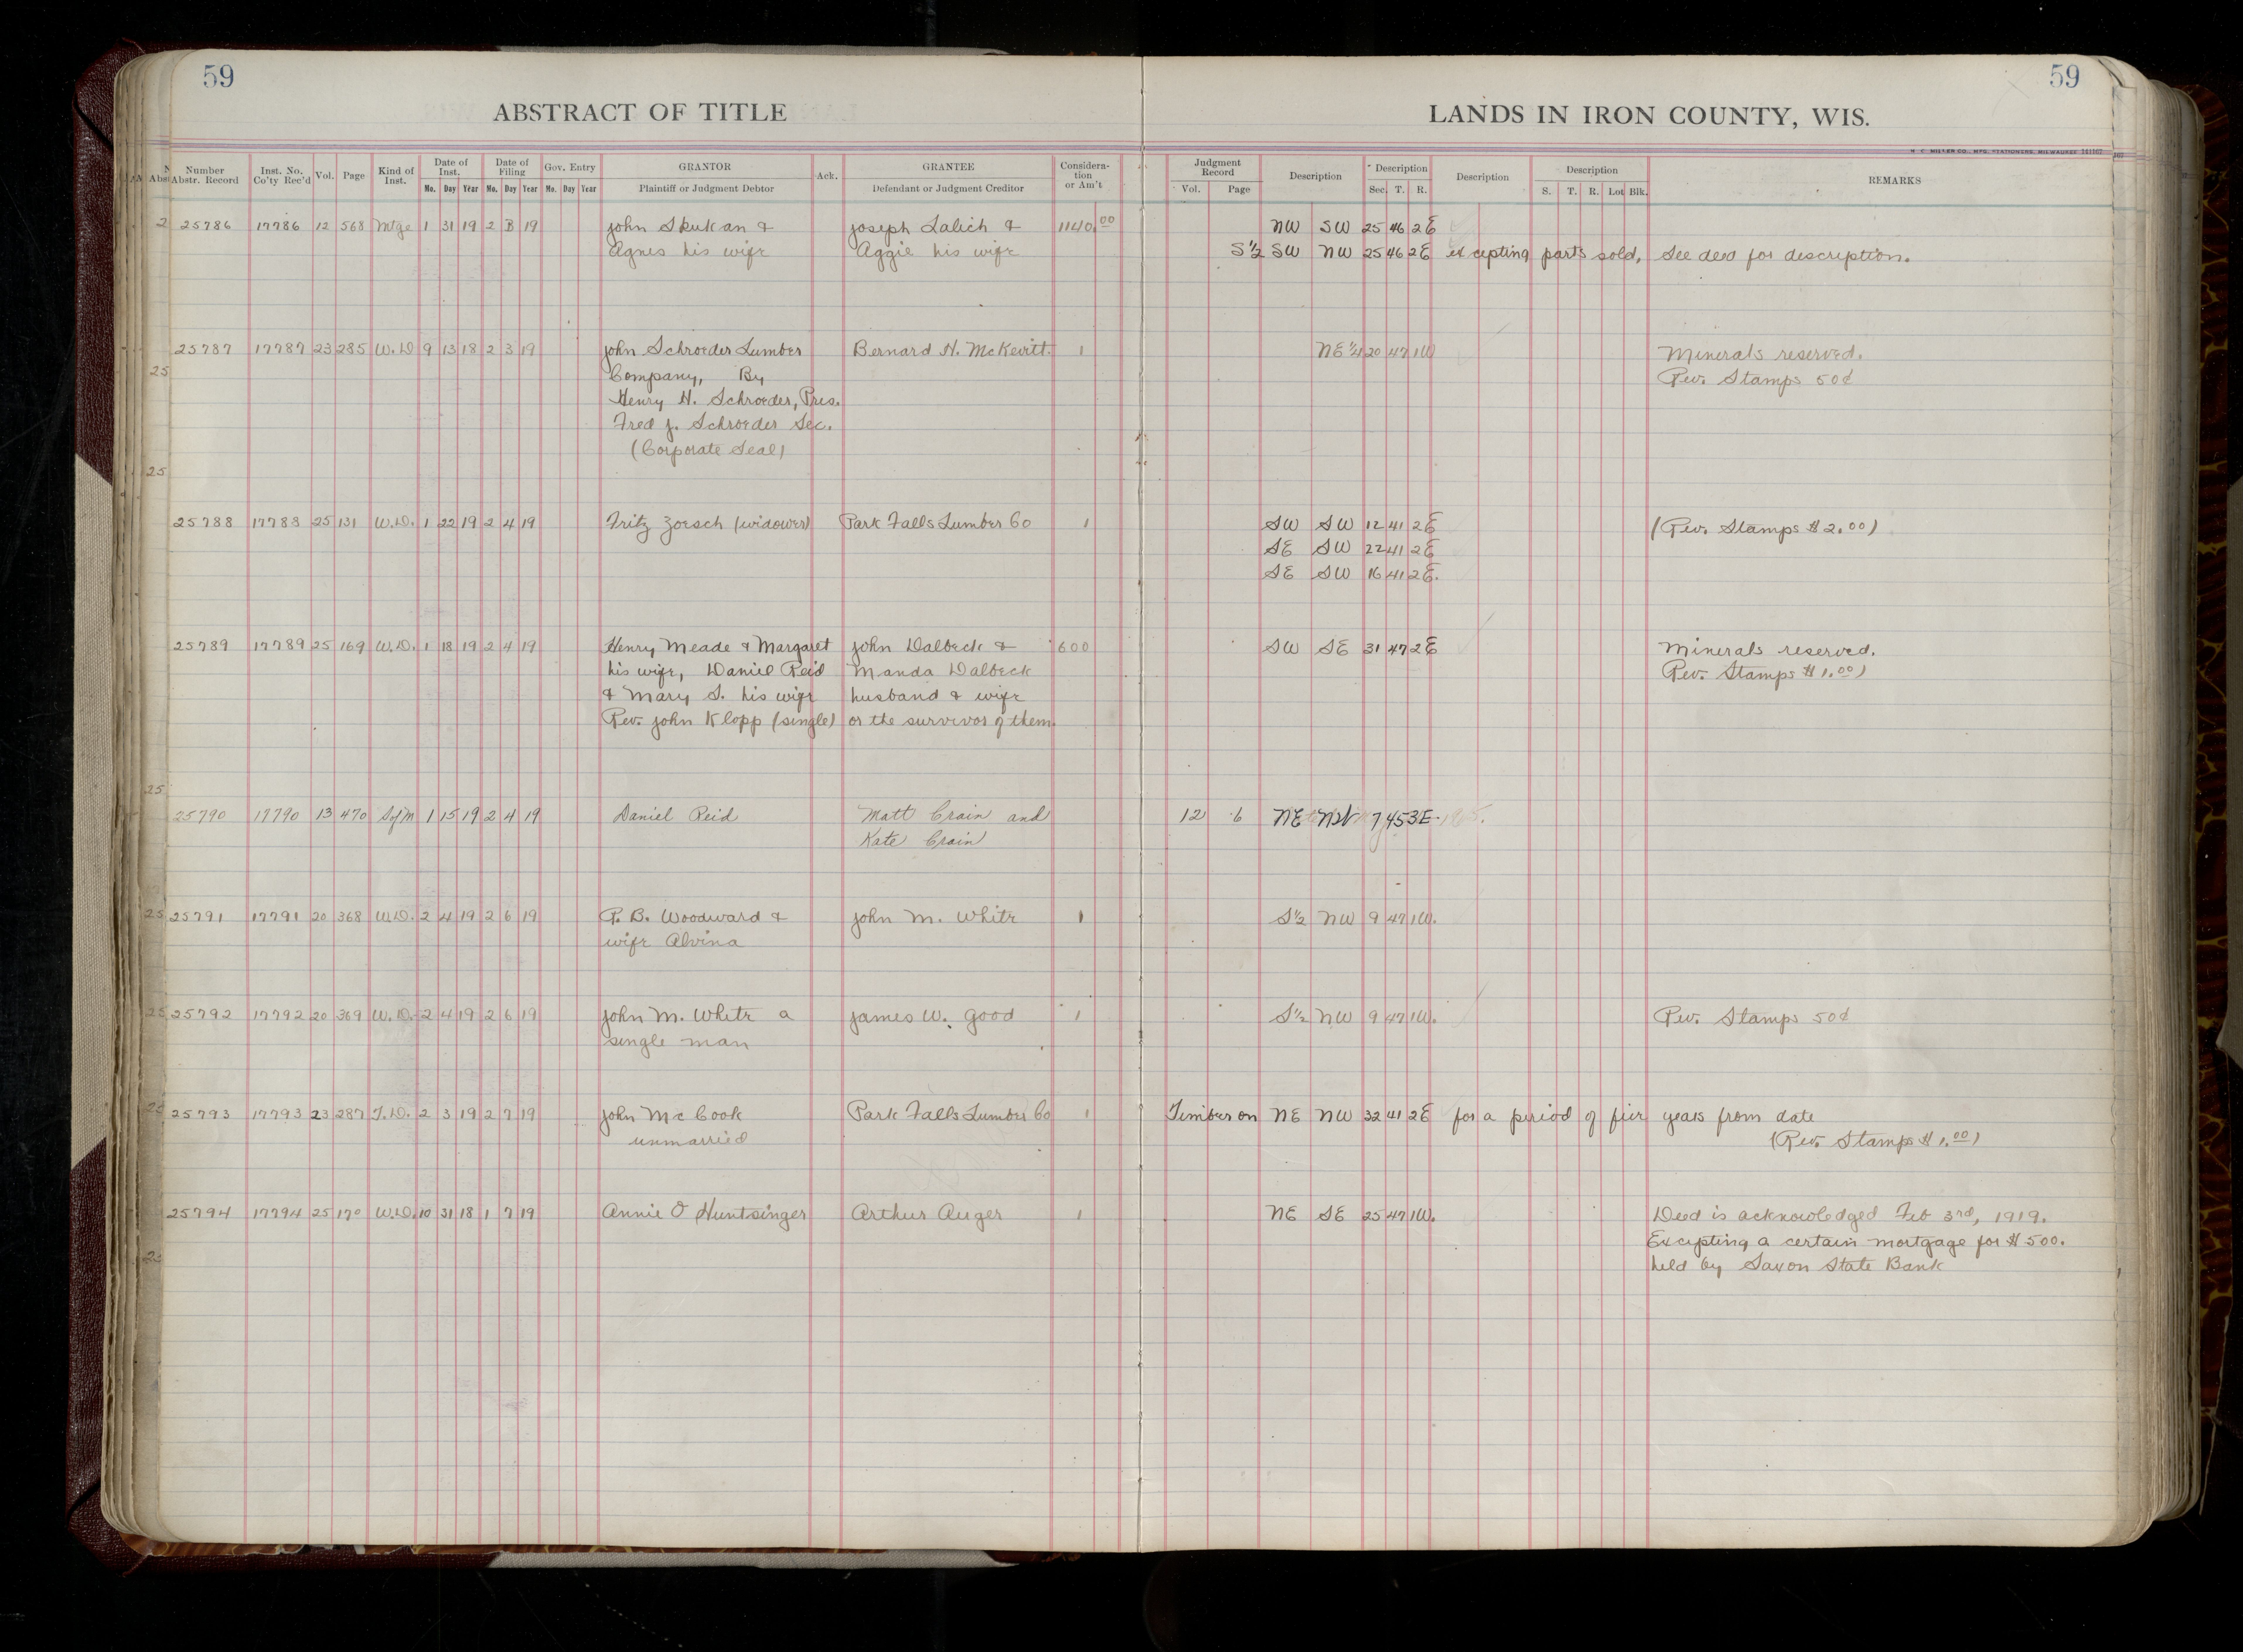 59
59
ABSTRACT OF TITLE
LANDS IN IRON COUNTY, WIS.
Number Abstr. Record Inst. No. Co'ty Rec'd Vol. Page Kind of Inst. Date of Inst. Mo. Day Year Date of Filing Mo. Day Year Gov. Entry Mo. Day Year GRANTOR Plaintiff or Judgment Debtor Ack. GRANTEE Defendant or Judgment Creditor Considera-tion or Am't Judgment Record Vol. Page Description Description Sec. T. R. Description Description S. T. R. Lot Blk. REMARKS
25786 17786 12 568 Mtge 1 31 19 2 3 19 John Skukan & Joseph Lalich & 1140.00 NW SW 25 46 2E
Agnes his wife Aggie his wife S½ SW NW 25 46 2E excepting parts sold, See deed for description.
25787 17787 23 285 W.D 9 13 18 2 3 19 John Schroeder Lumber Bernard H. McKevitt. 1 NE¼ 20 47 1W Minerals reserved.
Company, By Rev. Stamps 50¢
Henry H. Schroeder, Pres.
Fred J. Schroeder Sec.
(Corporate Seal)
25788 17788 25 131 W.D. 1 22 19 2 4 19 Fritz Zoesch (widower) Park Falls Lumber Co 1 SW SW 12 41 2E (Rev. Stamps $2.00)
SE SW 22 41 2E
SE SW 16 41 2E.
25789 17789 25 169 W.D. 1 18 19 2 4 19 Henry Meade & Margaret John Dalbeck & 600 SW SE 31 47 2E Minerals reserved.
his wife, Daniel Reid Manda Dalbeck Rev. Stamps $1.00)
& Mary S. his wife husband & wife
Rev. John Klopp (single) or the survivor of them
25790 17790 13 470 1 15 19 2 4 19 Daniel Reid Matt Crain and 12 6 NE NW 7 45 3E.
Kate Crain
25791 17791 20 368 W.D. 2 4 19 2 6 19 P. B. Woodward & John M. White 1 S½ NW 9 47 1W.
wife Alvina
25792 17792 20 369 W.D. 2 4 19 2 6 19 John M. White a James W. Good 1 S½ NW 9 47 1W. Rev. Stamps 50¢
single man
25793 17793 23 287 T.D. 2 3 19 2 7 19 John McCook Park Falls Lumber Co 1 Timber on NE NW 32 41 2E for a period of five years from date
unmarried (Rev. Stamps $1.00)
25794 17794 25 170 W.D. 10 31 18 1 7 19 Annie O Huntsinger Arthur Auger 1 NE SE 25 47 1W. Deed is acknowledged Feb 3rd, 1919.
Excepting a certain mortgage for $500.
held by Saxon State Bank